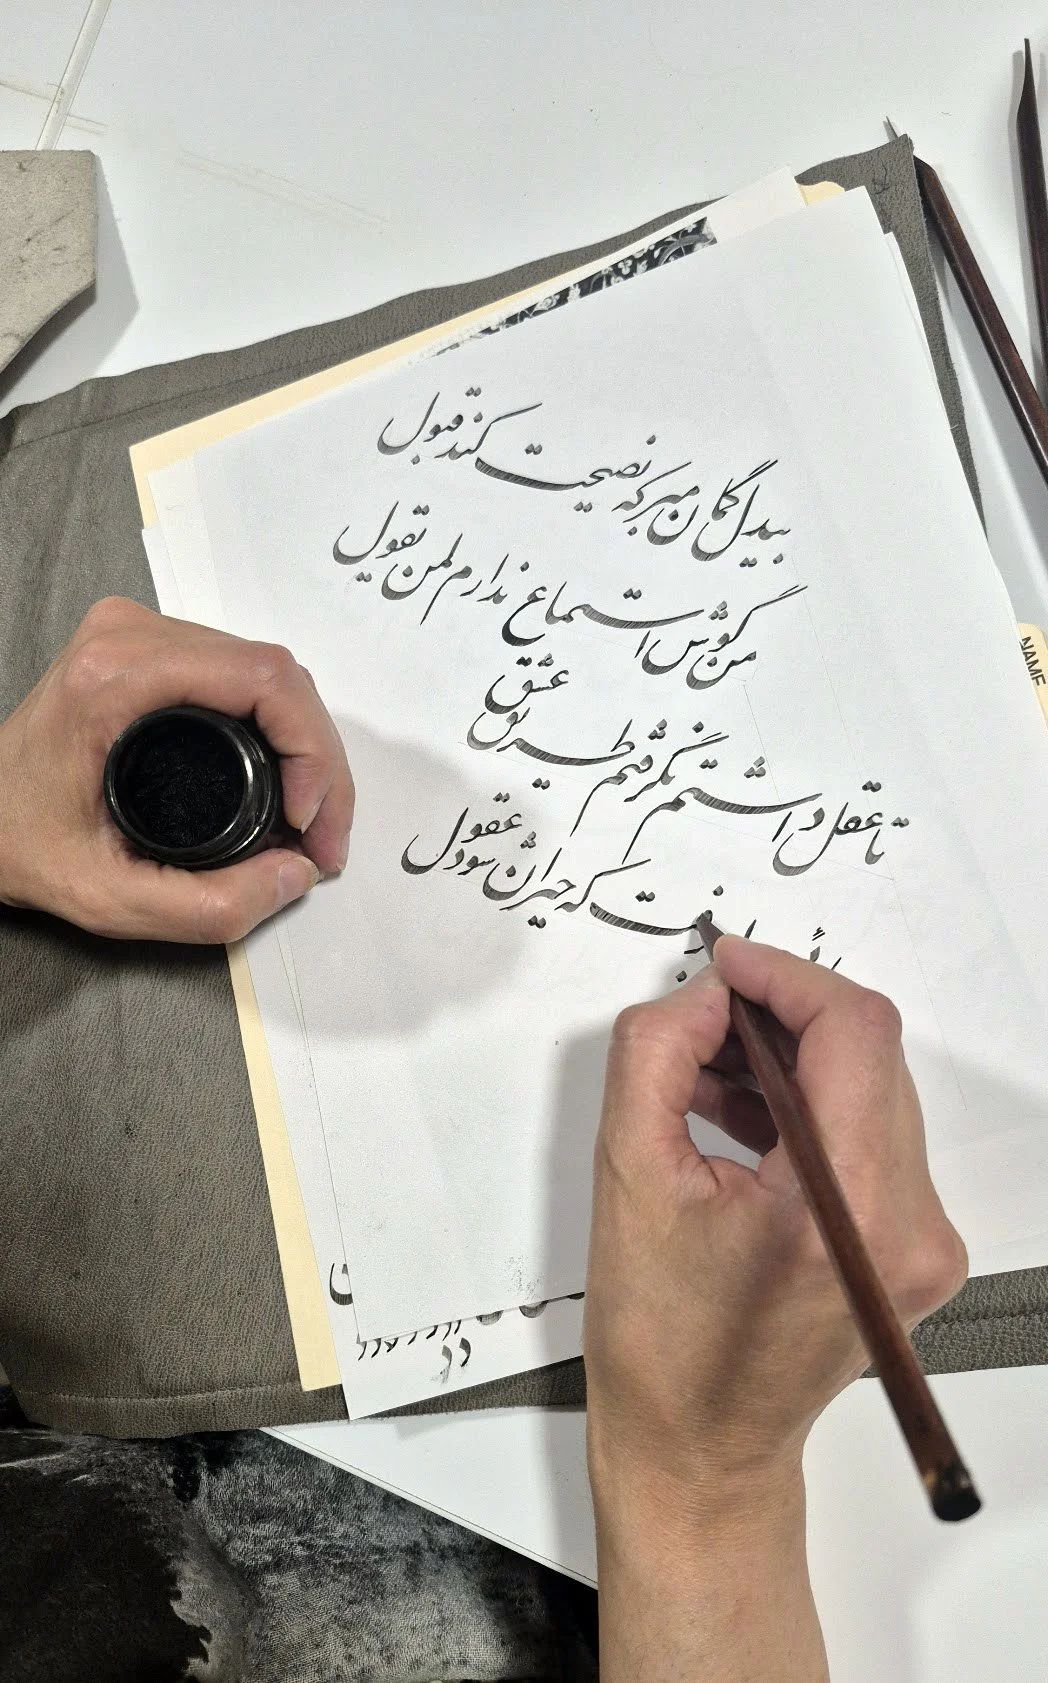 بیدل گمان مبر که نصیحت کند قبول
من گوش استماع ندارم لمن تقول
تا عقل داشتم نگرفتم طریق عشق
که حیران شود عقول
NAME